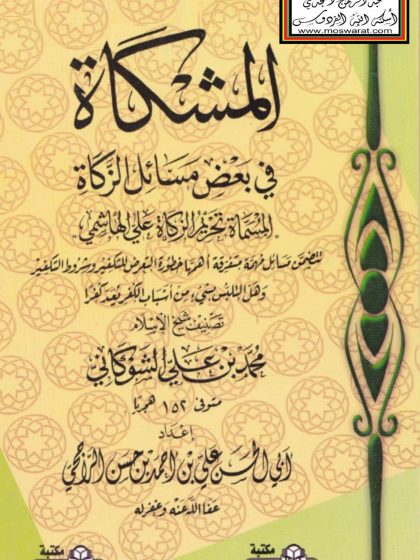 أسكنه الله الفردوس
www.moswarat.com
المشكاة
في بعض مسائل الزكاة
المسماة تحريم الزكاة على الهاشمي
تتضمن مسائل مهمة متفرقة أهمها خطورة التعرض للتكفير وشروط التكفير
وهل التلبس بشيء من أسباب الكفر يعد كفرا
تصنيف شيخ الإسلام
محمد بن علي الشوكاني
متوفى ١٥٢ هجريا
إعداد
أبي الحسن علي بن أحمد بن حسن الرازحي
عفا الله عنه وغفر له
مكتبة
مكتبة